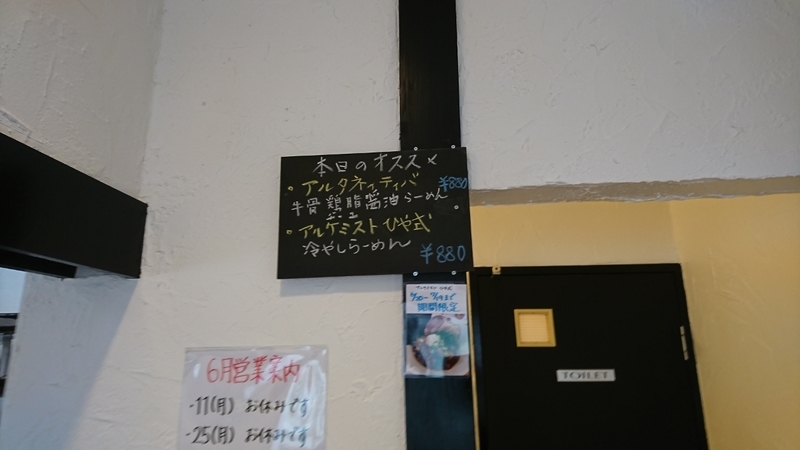 本日のオススメ
・アルタネィティバ ¥880
牛骨 鶏脂醤油らーめん
・アルケミスト ひや式
冷やしらーめん
¥880
期間限定
TOILET
6月営業案内
・11(月) お休みです
・25(月) お休みです